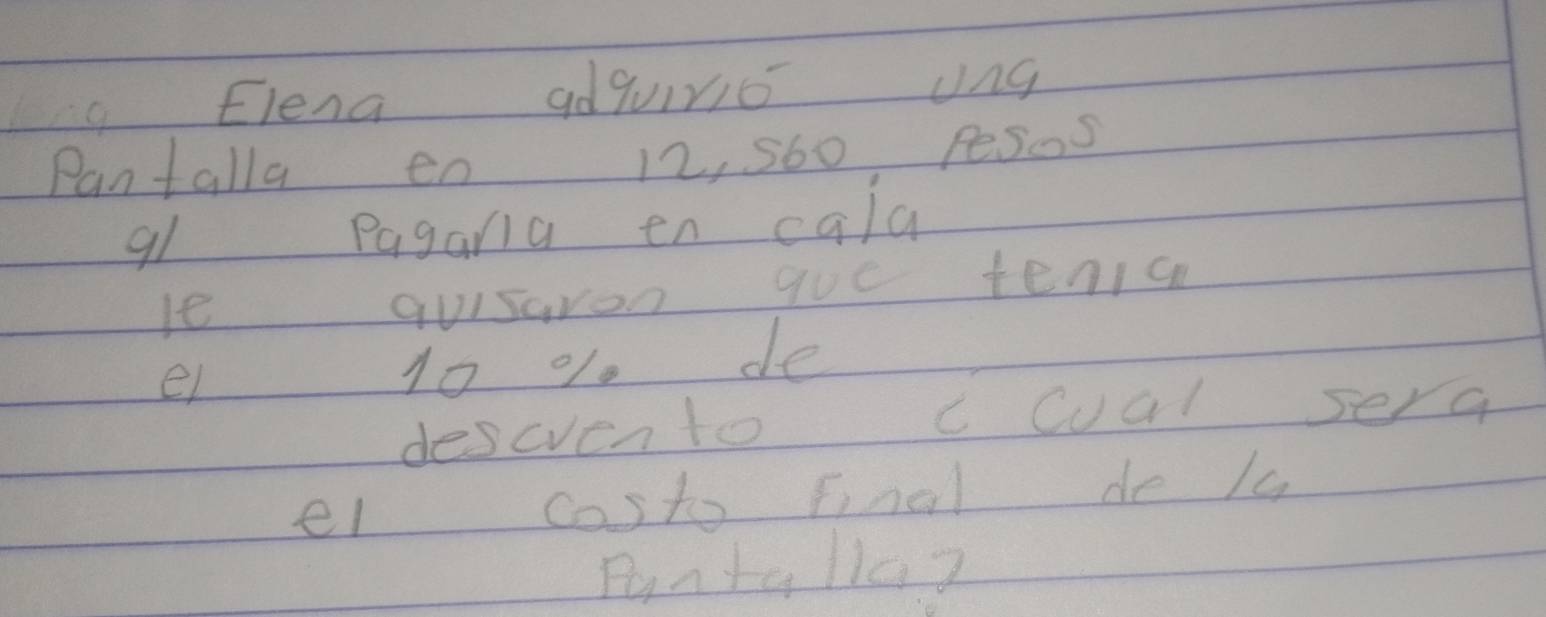 Elena adquirió una
Pantalla en 12,560 Pesos
al Pagarla en caja
le avisaron que tenia
el 10 % de
descuento ¿ cual sera
el costo Final de la
Pantalla?